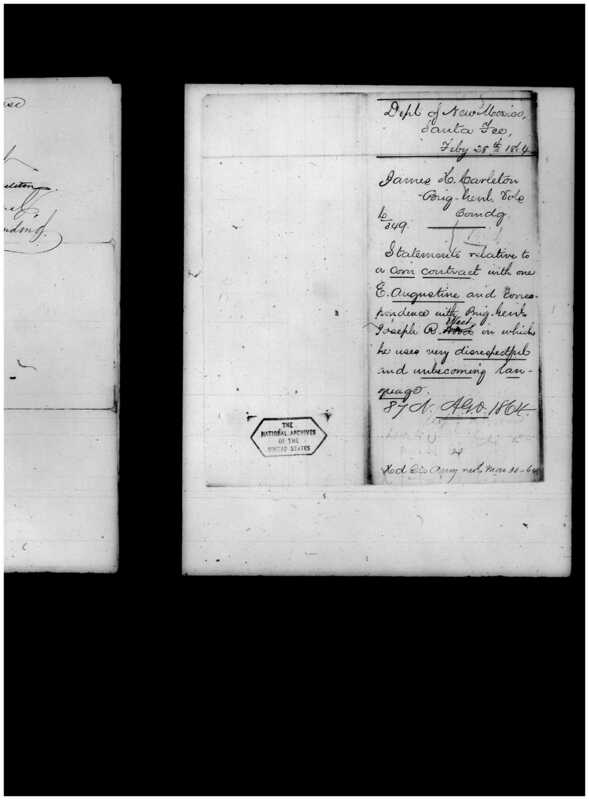 Dept of New Mexico,
Santa Fee,
Feby 28th 1864
James H. Carleton
Brig. Genl. Vols
Comdg
349.
Statements relative to
a corn contract with one
E. Augustine and Corres-
pondence with Brig. Genl.
Joseph R. West in which
he uses very disrespectful
and unbecoming lan-
guage.
87 N. A.G.O. 1864.
THE
NATIONAL ARCHIVES
OF THE
UNITED STATES